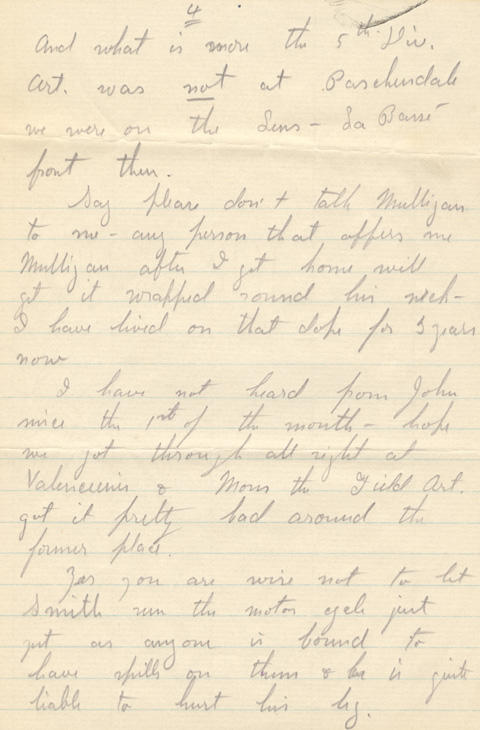 4
And what is more the 5th Div.
Art. was not at Paschendale
we were on the Lens - La Bassé
front then.
Say please don't talk Mulligan
to me - any person that offers me
Mulligan after I get home will
get it wrapped round his neck -
I have lived on that dope for 3 years
now
I have not heard from John
since the 1st of the month - hope
he got through all right at
Valenciennes & Mons the Field Art.
got it pretty bad around the
former place.
Yes you are wise not to let
Smith run the motor cycle just
yet as anyone is bound to
have spills on them & he is quite
liable to hurt his leg.